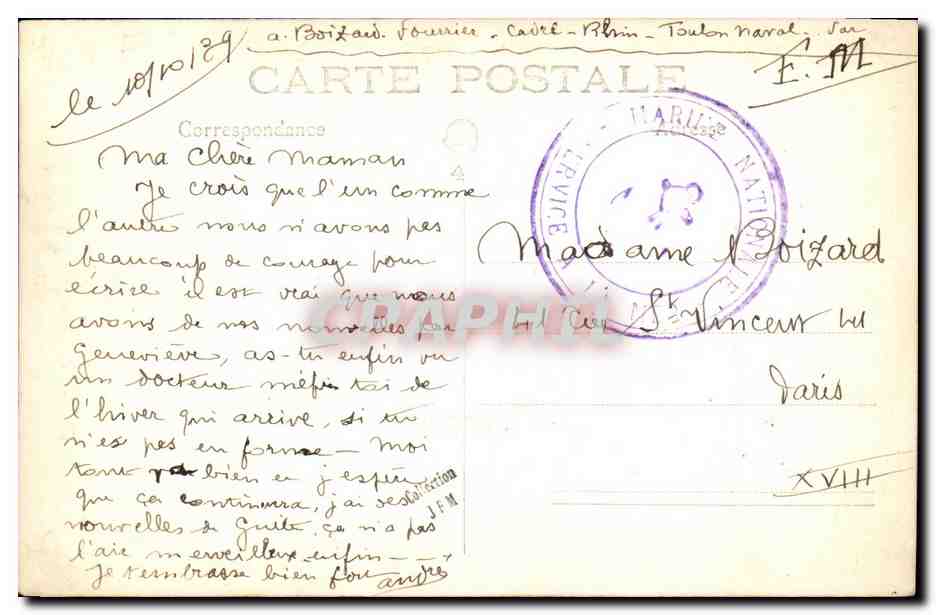 a. Boizard. fourrier. Cadre - Rhin - Toulon naval. Var
le 10/10/39
F. M
CARTE POSTALE
Correspondance
Adresse
MARINE NATIONALE
SERVICE À LA
4
Ma chère Maman
Je crois que l'un comme
l'autre nous n'avons pas
beaucoup de courage pour
écrire il est vrai que nous
avons de nos nouvelles par
Geneviève, as-tu enfin vu
un docteur méfie toi de
l'hiver qui arrive, si tu
n'es pas en forme - Moi
tout va bien et j'espère
que ça continuera, j'ai des
nouvelles de Guite, ça n'a pas
l'air merveilleux enfin - - .
Je t'embrasse bien fort
andré
Madame Boizard
41 St Vincent
Paris
XVIII
Collection
JFM
CPAPHIL